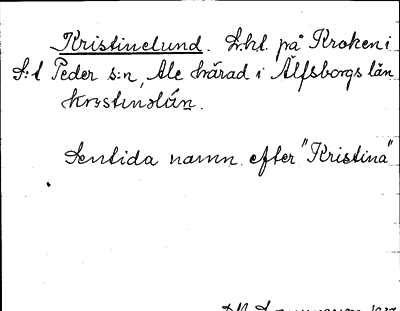 Kristinelund. L:hl. på Kroken i
S:t Peder s:n, Ale härad i Älfsborgs län
Sentida namn efter "Kristina"